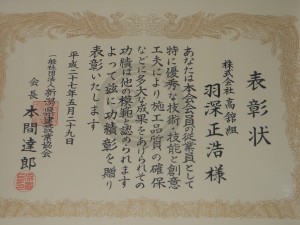 表彰状
株式会社高舘組
羽深正浩様
あなたは本会会員の従業員として
特に優秀な技術・技能と創意
工夫により施工品質の確保
などに多大な成果をあげられその
功績は他の模範と認められます
よって茲に功績彰を贈り
表彰いたします
平成二十七年五月二十九日
一般社団法人新潟県建設業協会
会長本間達郎